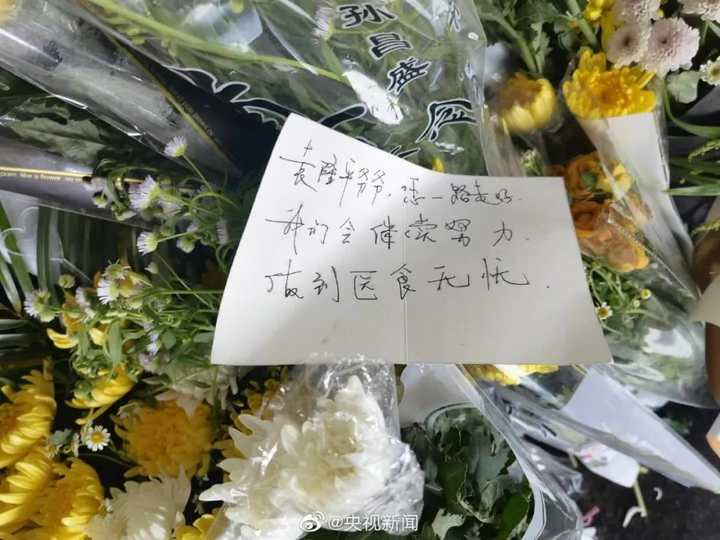 孙昌盛
袁隆平爷爷,您一路走好.
我们会继续努力.
做到医食无忧.
@央视新闻